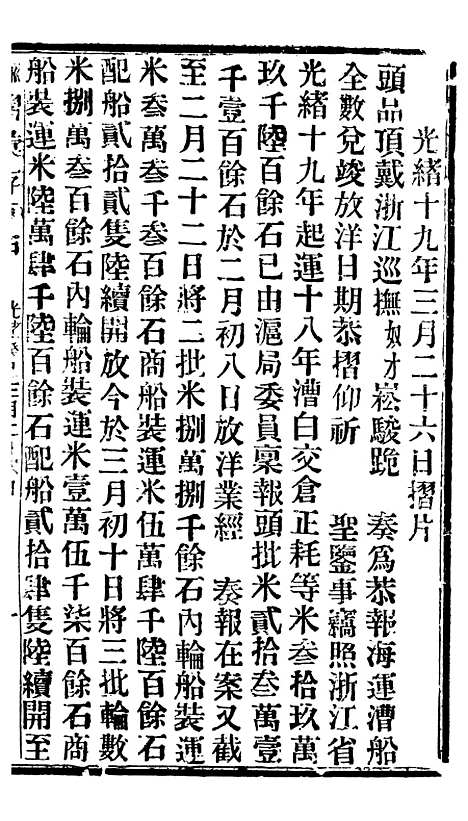 光緒十九年三月二十六日摺片
頭品頂戴浙江巡撫奴才崧駿跪　奏爲恭報海運漕船
全數兌竣放洋日期恭摺仰祈　聖鑒事竊照浙江省
光緒十九年起運十八年漕白交倉正耗等米叁拾玖萬
玖千陸百餘石已由滬局委員稟報頭批米貳拾叁萬壹
千壹百餘石於二月初八日放洋業經　奏報在案又截
至二月二十二日將二批米捌萬捌千餘石內輪船裝運
米叁萬叁千叁百餘石商船裝運米伍萬肆千陸百餘石
配船貳拾貳隻陸續開放今於三月初十日將三批輪數
米捌萬叁百餘石內輪船裝運米壹萬伍千柒百餘石商
船裝運米陸萬肆千陸百餘石配船貳拾肆隻陸續開至